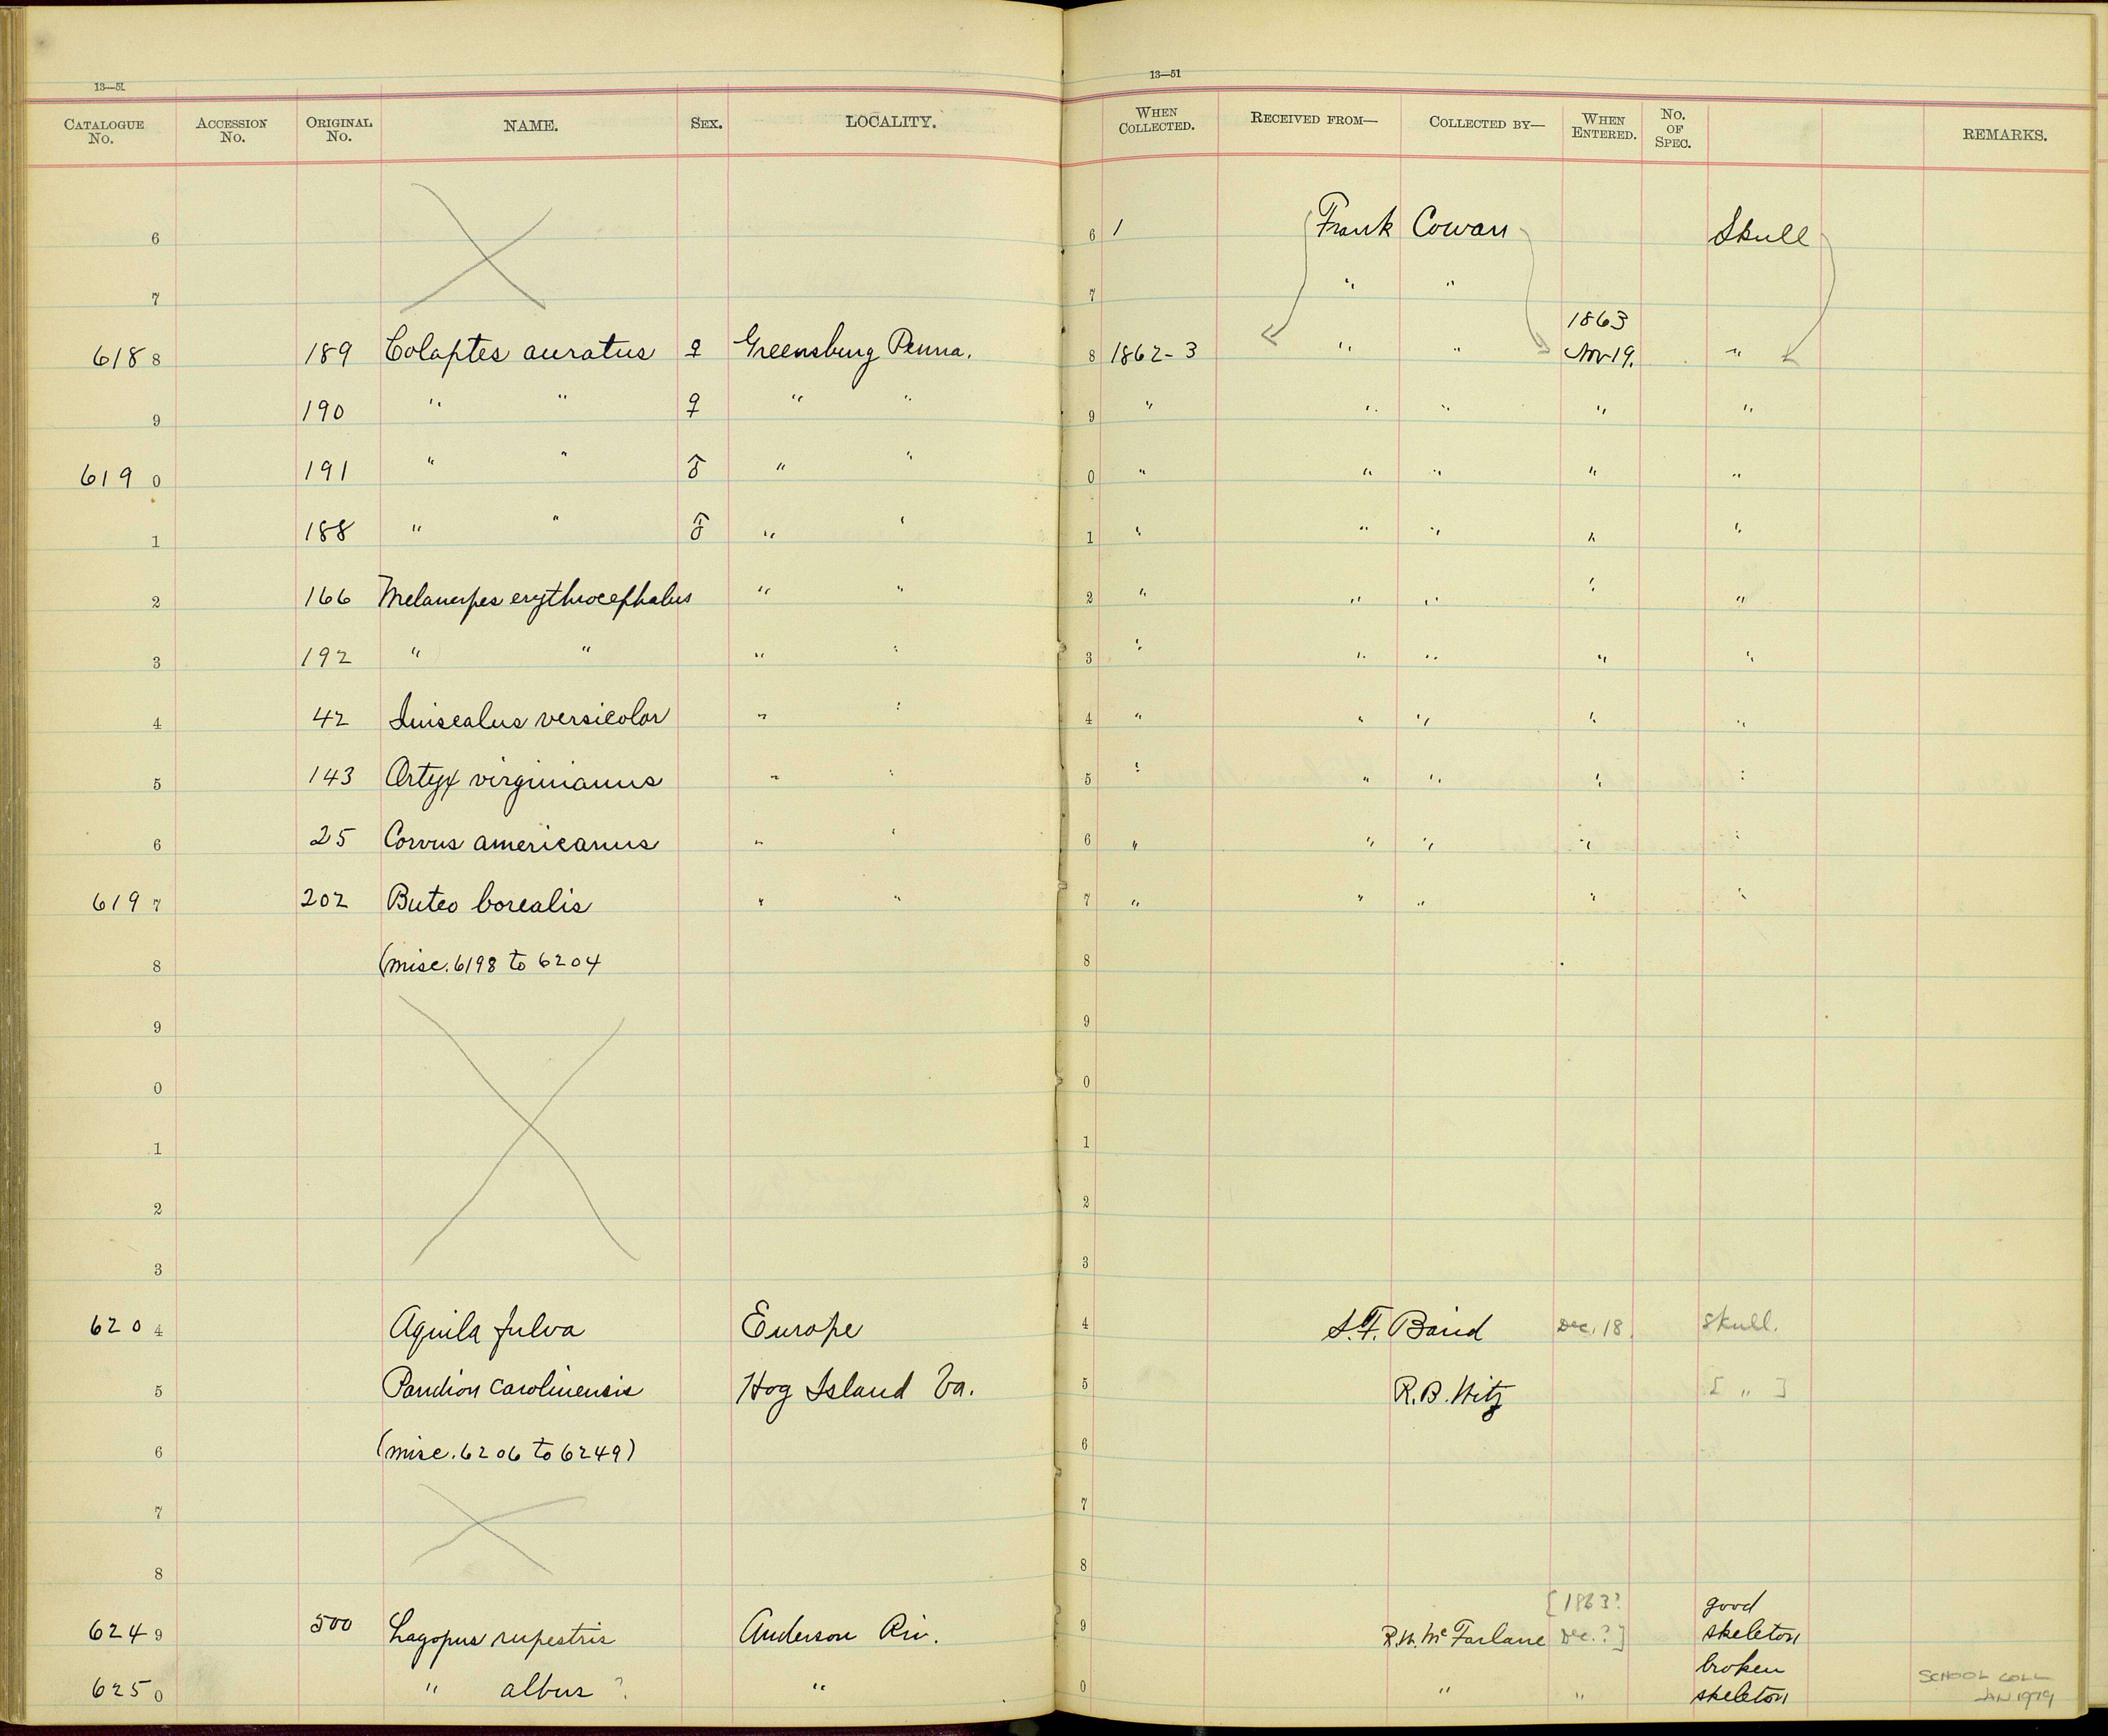 13—51
CATALOGUE No. ACCESSION No. ORIGINAL No. NAME. SEX. LOCALITY.
6
7
6188 189 Colaptes auratus ♀ Greensburg Penna.
9 190 " " ♀ " "
6190 191 " " ♂ " "
1 188 " " ♂ " "
2 166 Melanerpes erythrocephalus " "
3 192 " " " "
4 42 Quiscalus versicolor " "
5 143 Ortyx virginianus " "
6 25 Corvus americanus " "
6197 202 Buteo borealis " "
8 (misc. 6198 to 6204
9
0
1
2
3
6204 Aquila fulva Europe
5 Pandion carolinensis Hog Island Va.
6 (misc. 6206 to 6249)
7
8
6249 500 Lagopus rupestris Anderson Riv.
6250 " albus ? "
13—51
WHEN COLLECTED. RECEIVED FROM— COLLECTED BY— WHEN ENTERED. No. OF SPEC. REMARKS.
6 1 Frank Cowan Skull
7 " "
1863
8 1862-3 " " Nov 19. "
9 " " " " "
0 " " " " "
1 " " " " "
2 " " " " "
3 " " " " "
4 " " " " "
5 " " " " "
6 " " " " "
7 " " " " "
8
9
0
1
2
3
4 S.F. Baird Dec. 18. Skull.
5 R.B. Hitz [ " ]
6
7
8
[1863? good
9 McFarlane Dec.?] skeleton
broken
0 " " skeleton
SCHOOL COLL
JAN 1979